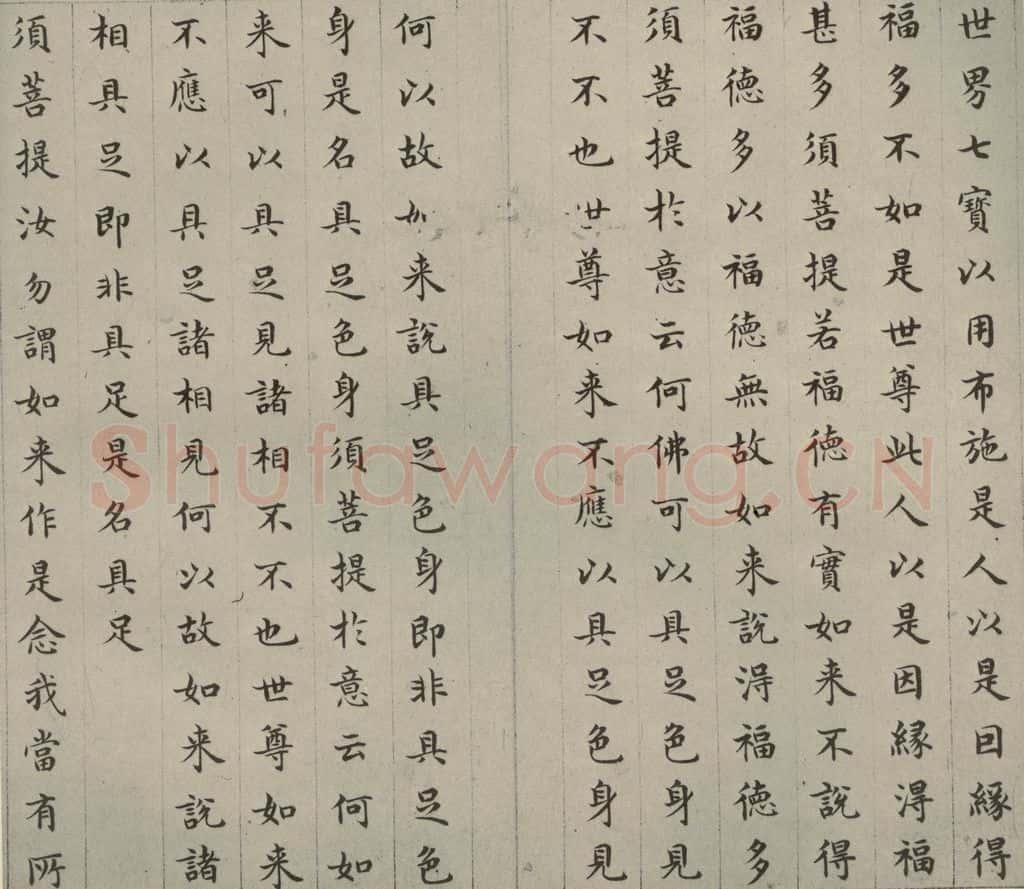 世界七寶以用布施是人以是因緣得
福多不如是世尊此人以是因緣得福
甚多須菩提若福德有實如来不說得
福德多以福德無故如来說得福德多
須菩提於意云何佛可以具足色身見
不不也世尊如来不應以具足色身見
何以故如来說具足色身即非具足色
身是名具足色身須菩提於意云何如
来可以具足見諸相不不也世尊如来
不應以具足諸相見何以故如来說諸
相具足即非具足是名具足
須菩提汝勿謂如来作是念我當有所
Shufawang.CN